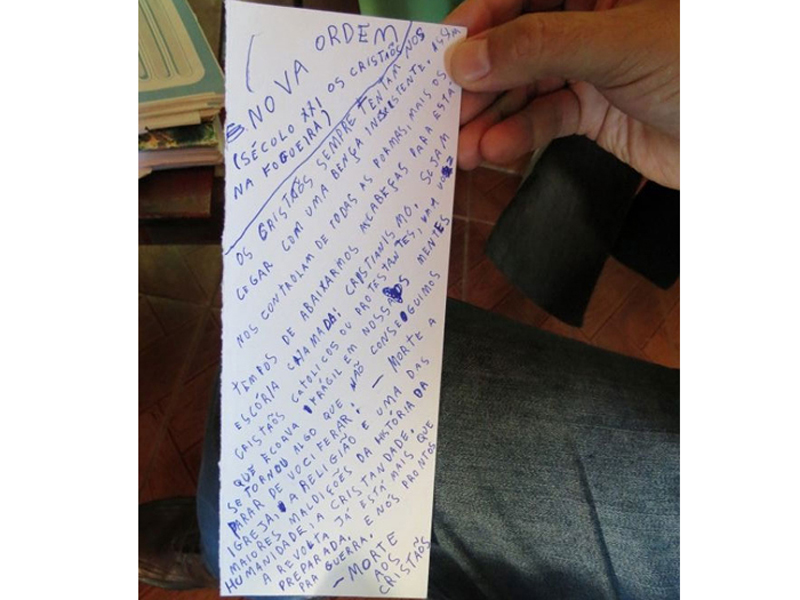 NOVA ORDEM
(SÉCULO XXI OS CRISTÃOS
NA FOGUEIRA)
OS CRISTÃOS SEMPRE TENTAM NOS
CEGAR COM UMA BENÇA INSISTENTE.
NOS CONTROLAM DE TODAS AS FORMAS, MAIS OS
TEMPOS DE ABAIXARMOS AS CABEÇAS PARA ESTA
ESCÓRIA CHAMADA: CRISTIANISMO. SEJAM
CRISTÃOS CATOLICOS OU PROTESTANTES, UMA VOZ
QUE ECOAVA FRÁGIL EM NOSSAS MENTES
SE TORNOU ALGO QUE NÃO CONSEGUIMOS
PARAR DE VOCIFERAR: – MORTE A
IGREJA! A RELIGIÃO E UMA DAS
MAIORES MALDIÇÕES DA HISTÓRIA DA
HUMANIDADE: A CRISTANDADE.
A REVOLTA JÁ ESTÁ MAIS QUE
PREPARADA. E NÓS PRONTOS
PRA GUERRA.
– MORTE
AOS
CRISTÃOS